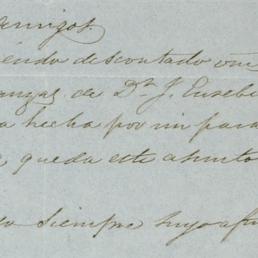 amigos.
iendo descontado
anzas de Dn. J. Eusebi
a hecha por mi para
, queda este asunto
o siempre suyo afm